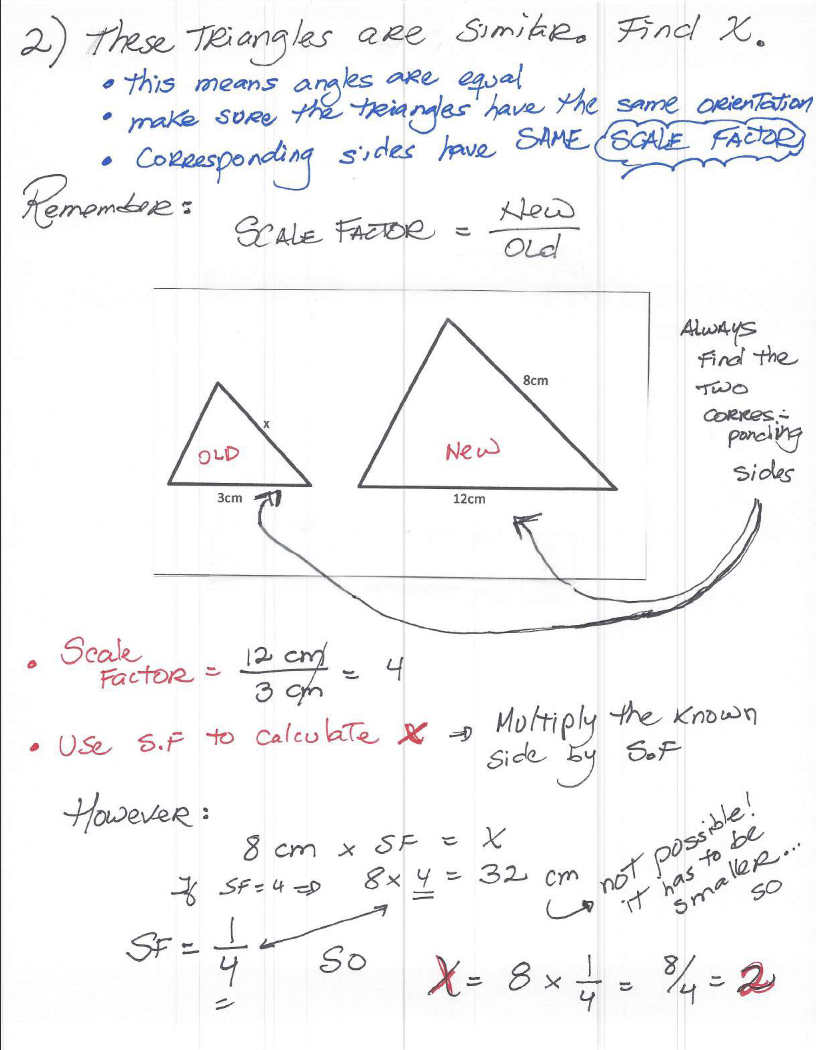 2) These Triangles are similar. Find X.
• this means angles are equal
• make sure the triangles have the same orientation
• Corresponding sides have SAME SCALE FACTOR
Remember:
SCALE FACTOR = New
Old
ALWAYS
Find the
TWO
CORRES-
ponding
sides
8cm
x
OLD
New
3cm
12cm
• Scale
Factor = 12 cm / 3 cm = 4
• Use S.F to calculate X ⇒ Multiply the known
side by S.F
However:
8 cm x SF = X
If SF=4 ⇒ 8x4 = 32 cm
not possible!
it has to be
smaller...
so
SF = 1/4
SO
X = 8 x 1/4 = 8/4 = 2